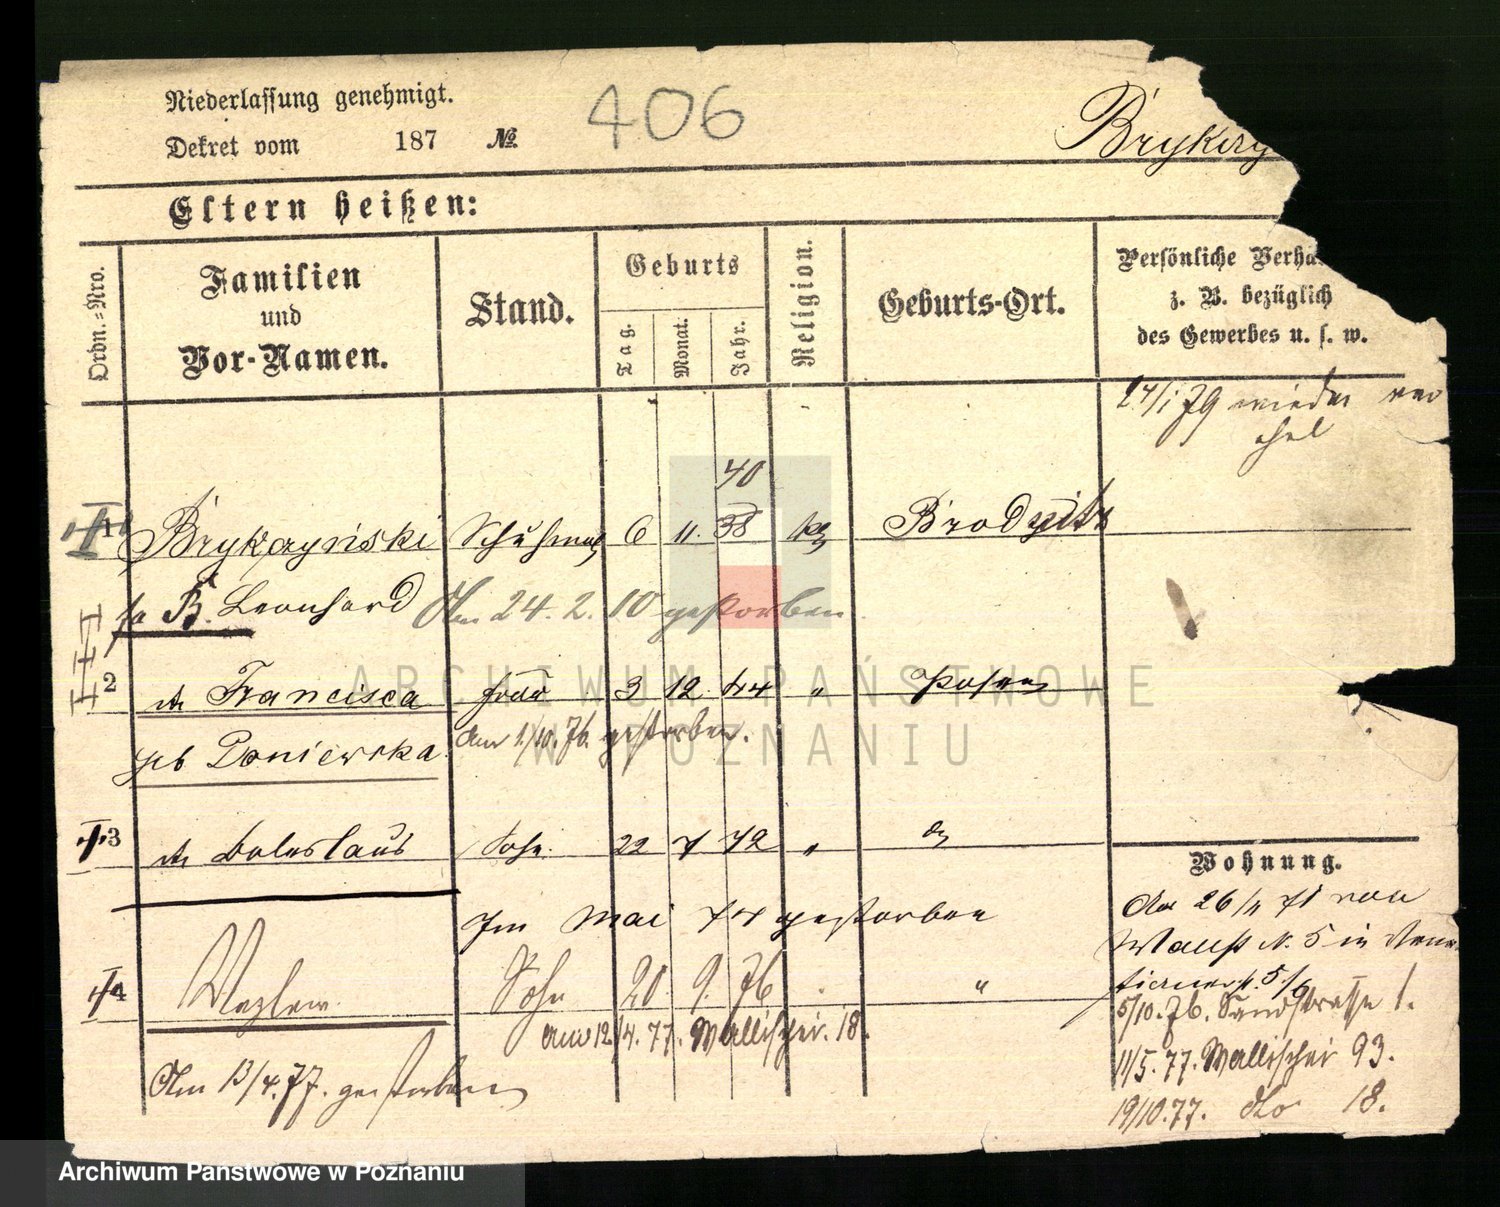 Niederlassung genehmigt.
Dekret vom 187 № 406
Brykczy
Eltern heißen:
Ordn.-Nro.
Familien
und
Vor-Namen.
Stand.
Geburts
Tag.
Monat.
Jahr.
Religion.
Geburts-Ort.
Persönliche Verhä
z. B. bezüglich
des Gewerbes u. s. w.
24/1 79 wieder ver
ehel
40
1 Brykczyński Schuhmach 6 11. 38 kth
B. Leonhard Am 24. 2. 10 gestorben.
2 Francisca Frau 3 12. 44 " Posen
geb Doniewska. Am 1/10. 76 gestorben.
3 Boleslaus Sohn. 22 7 72 "
Im Mai 74 gestorben
4 Sohn 20. 9. 76 "
am 12/4. 77. Wallischei. 18.
Am 13/4. 77. gestorben
Wohnung.
Am 26/11 71 von
N. 5 in
5/10. 76. Sandstrasse 1.
11/5. 77. Wallischei 93.
19/10. 77. dto 18.
ARCHIWUM PAŃSTWOWE
W POZNANIU
Archiwum Państwowe w Poznaniu